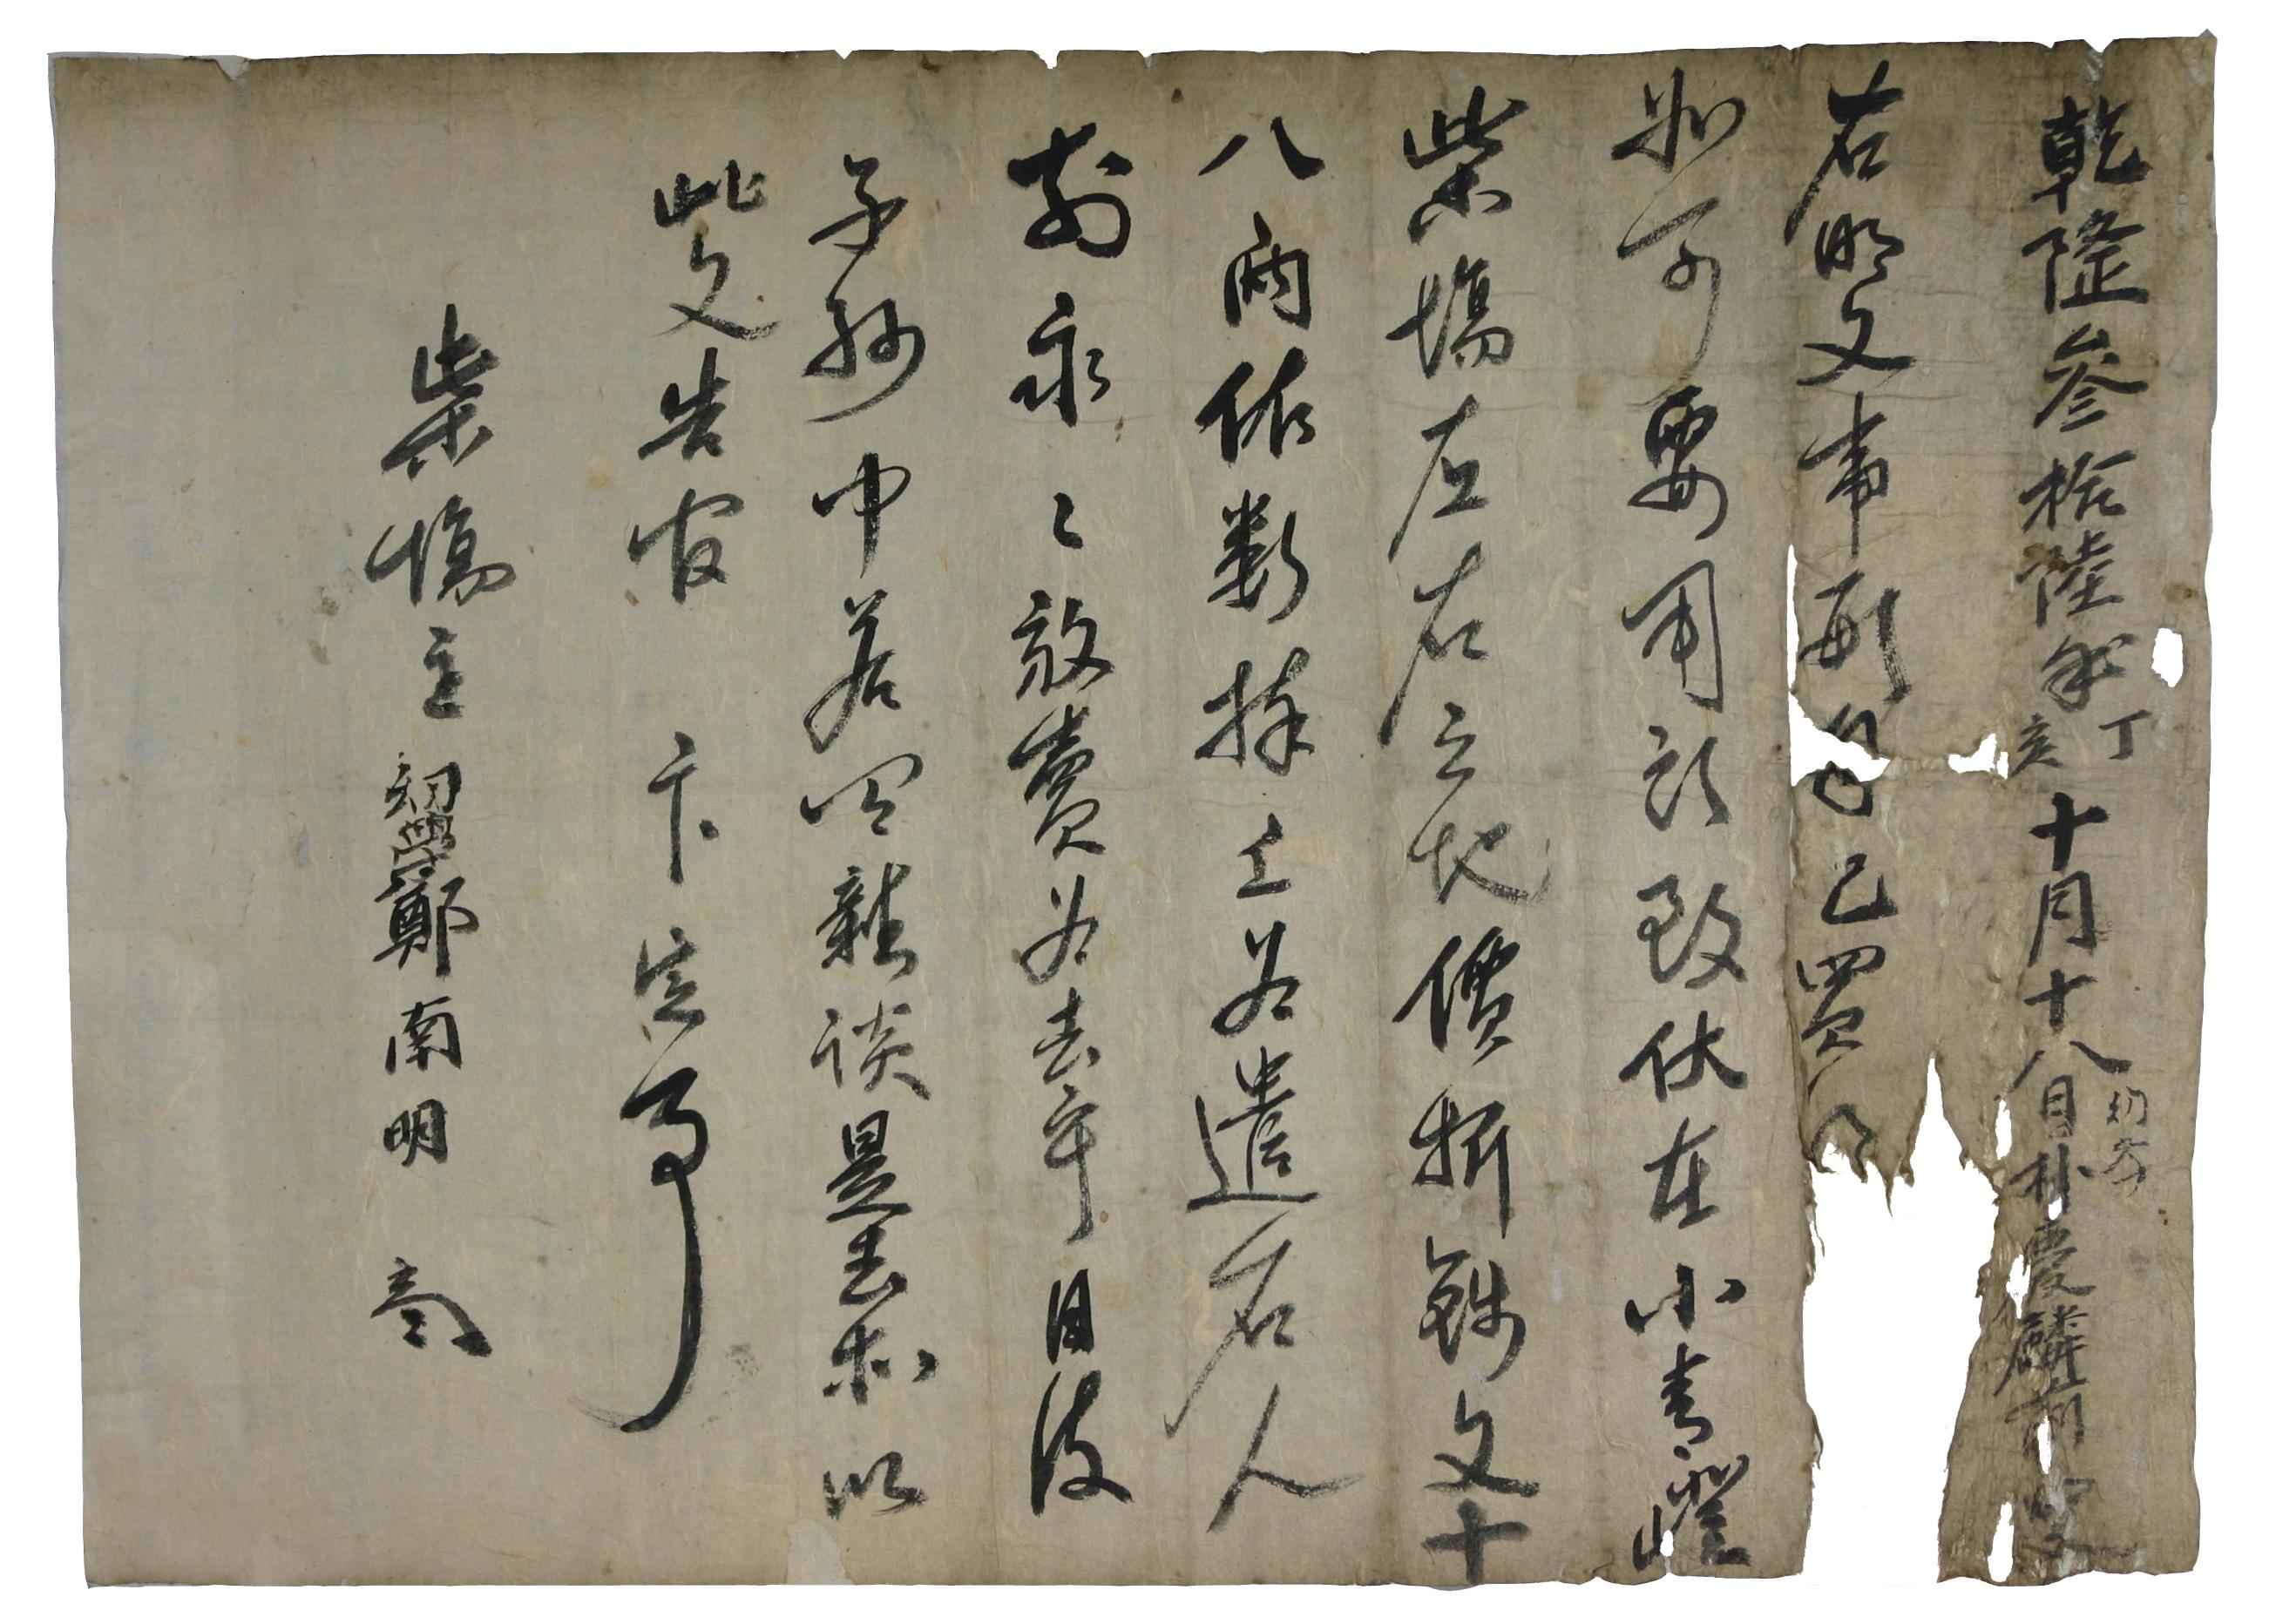 乾隆參拾陸年丁亥十月十八日幼學朴慶麟前明文
右明文事段自己買得
如可要用所致伏在小靑嶝
柴場左右之地價折錢文十
八兩依數捧上爲遣右人
前永〻放賣爲去乎日後
子孫中若曰雜談是去朩以
此文告官 卞定事
柴塲主 幼學鄭南明